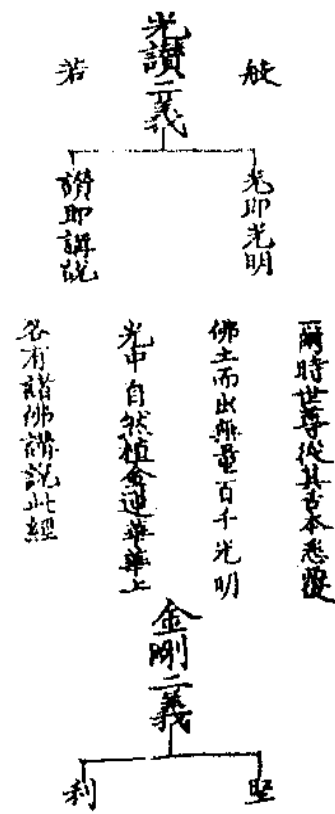 般
若
光讚二義
光即光明
讚即講說
爾時世尊從其舌本悉覆
佛土而出無量百千光明
光中自然植金蓮華華上
各有諸佛講說此經
金剛二義
堅
利